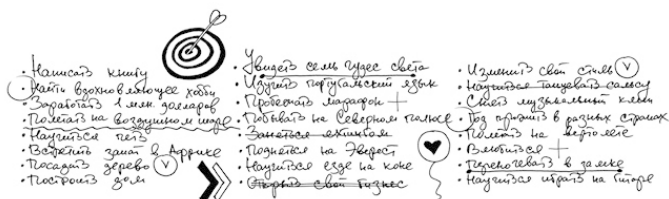 • Написать книгу
• Найти вдохновляющее хобби
• Заработать 1 млн. долларов
• Полетать на воздушном шаре
• Научиться петь
• Встретить закат в Африке
• Посадить дерево V
• Построить дом
• Увидеть семь чудес света
• Изучить португальский язык
• Пробежать марафон +
• Побывать на Северном полюсе
• Заняться яхтингом
• Подняться на Эверест
• Научиться езде на коне
• Открыть свой бизнес
• Изменить свой стиль V
• Научиться танцевать сальсу
• Снять музыкальный клип
• в разных странах
• Полетать на вертолете
• Влюбиться +
• Переночевать в замке
• Научиться играть на гитаре